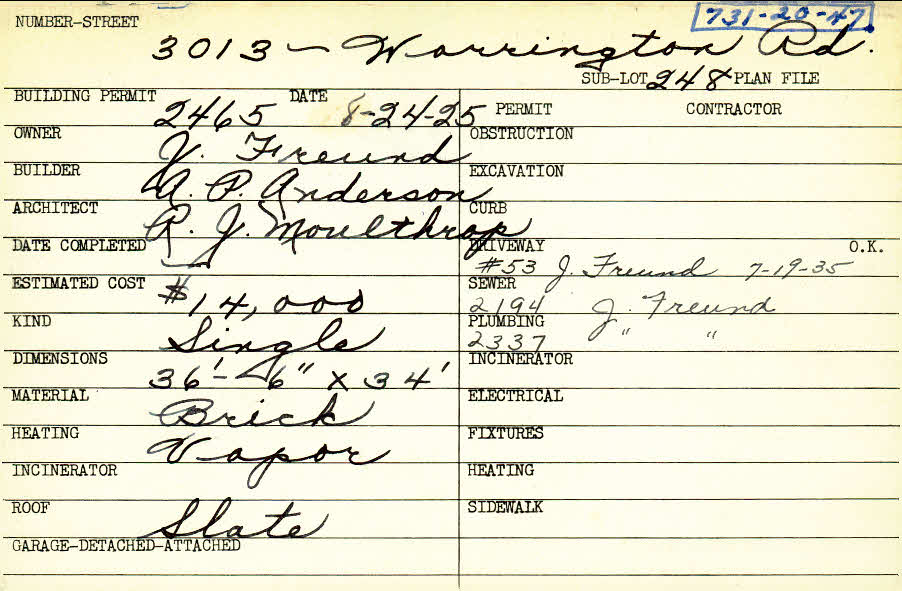 NUMBER-STREET 731-20-47
3013 - Warrington Rd.
SUB-LOT 248 PLAN FILE
BUILDING PERMIT 2465 DATE 8-24-25
OWNER J. Freund
BUILDER A. P. Anderson
ARCHITECT R. J. Moulthrop
DATE COMPLETED
ESTIMATED COST $14,000
KIND Single
DIMENSIONS 36'-6" x 34'
MATERIAL Brick
HEATING Vapor
INCINERATOR
ROOF Slate
GARAGE-DETACHED-ATTACHED
PERMIT CONTRACTOR
OBSTRUCTION
EXCAVATION
CURB
DRIVEWAY O.K.
#53 J. Freund 7-19-35
SEWER
2194 J. Freund
PLUMBING " "
2337
INCINERATOR
ELECTRICAL
FIXTURES
HEATING
SIDEWALK